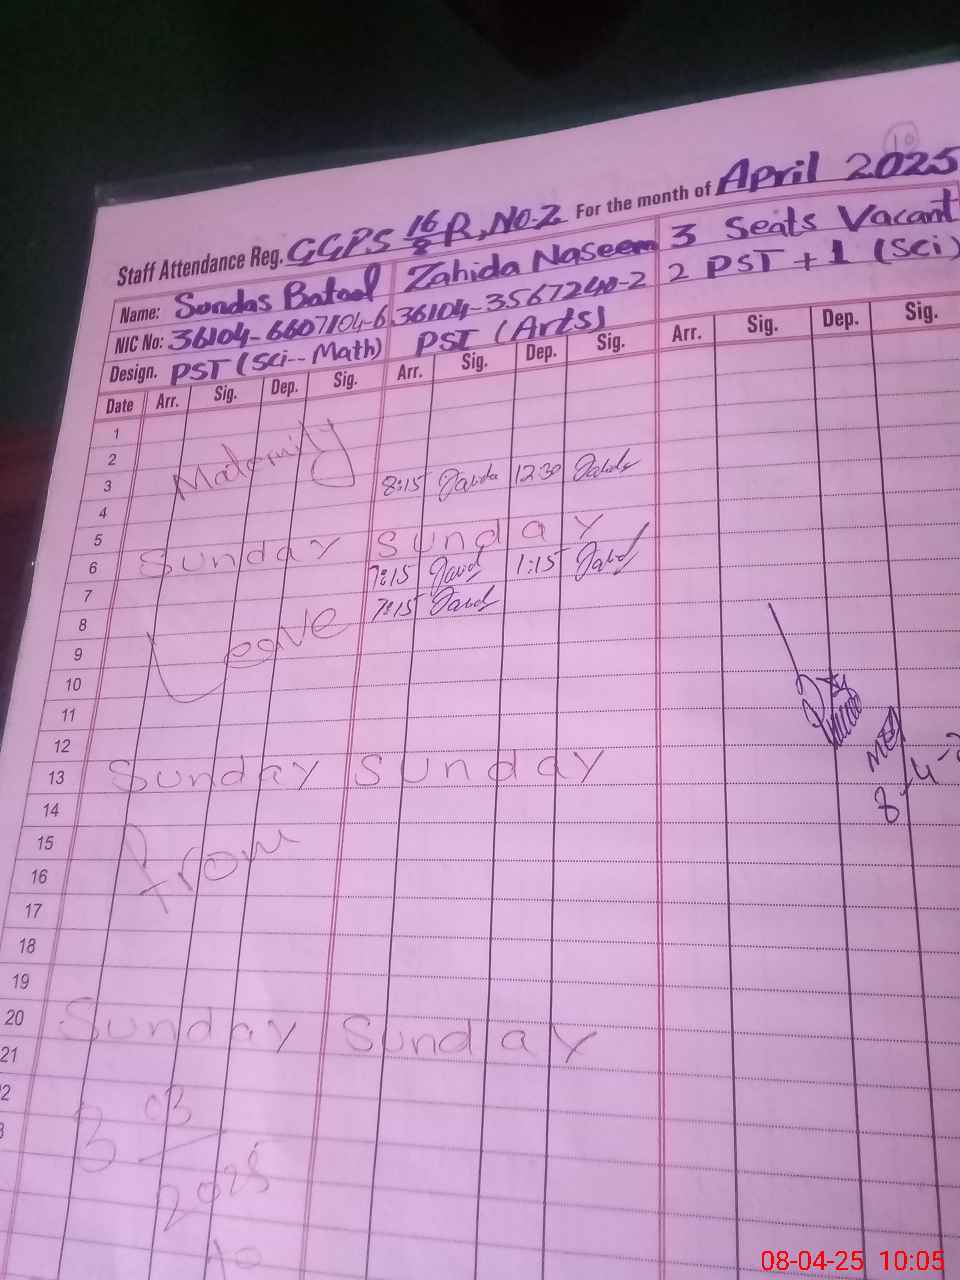 10
Staff Attendance Reg. GGPS 16/8 R, NO.2 For the month of April 2025
Name: Sundas Batool Zahida Naseem 3 Seats Vacant
NIC No: 36104-6607104-6 36104-3567240-2 2 PST + 1 (Sci)
Design. PST (Sci-- Math) PST (Arts)
Date Arr. Sig. Dep. Sig. Arr. Sig. Dep. Sig. Arr. Sig. Dep. Sig.
1
2
3 Maternity 8:15 12:30
4
5
6 Sunday Sunday
7 7:15 1:15
8 Leave 7:15
9
10
11
12
13 Sunday Sunday
14
15
16 From
17
18
19
20 Sunday Sunday
21
2
3 3 03
2025
To
08-04-25 10:05